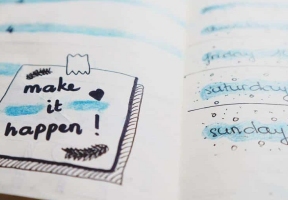 make
it
happen!
friday
saturday
sunday